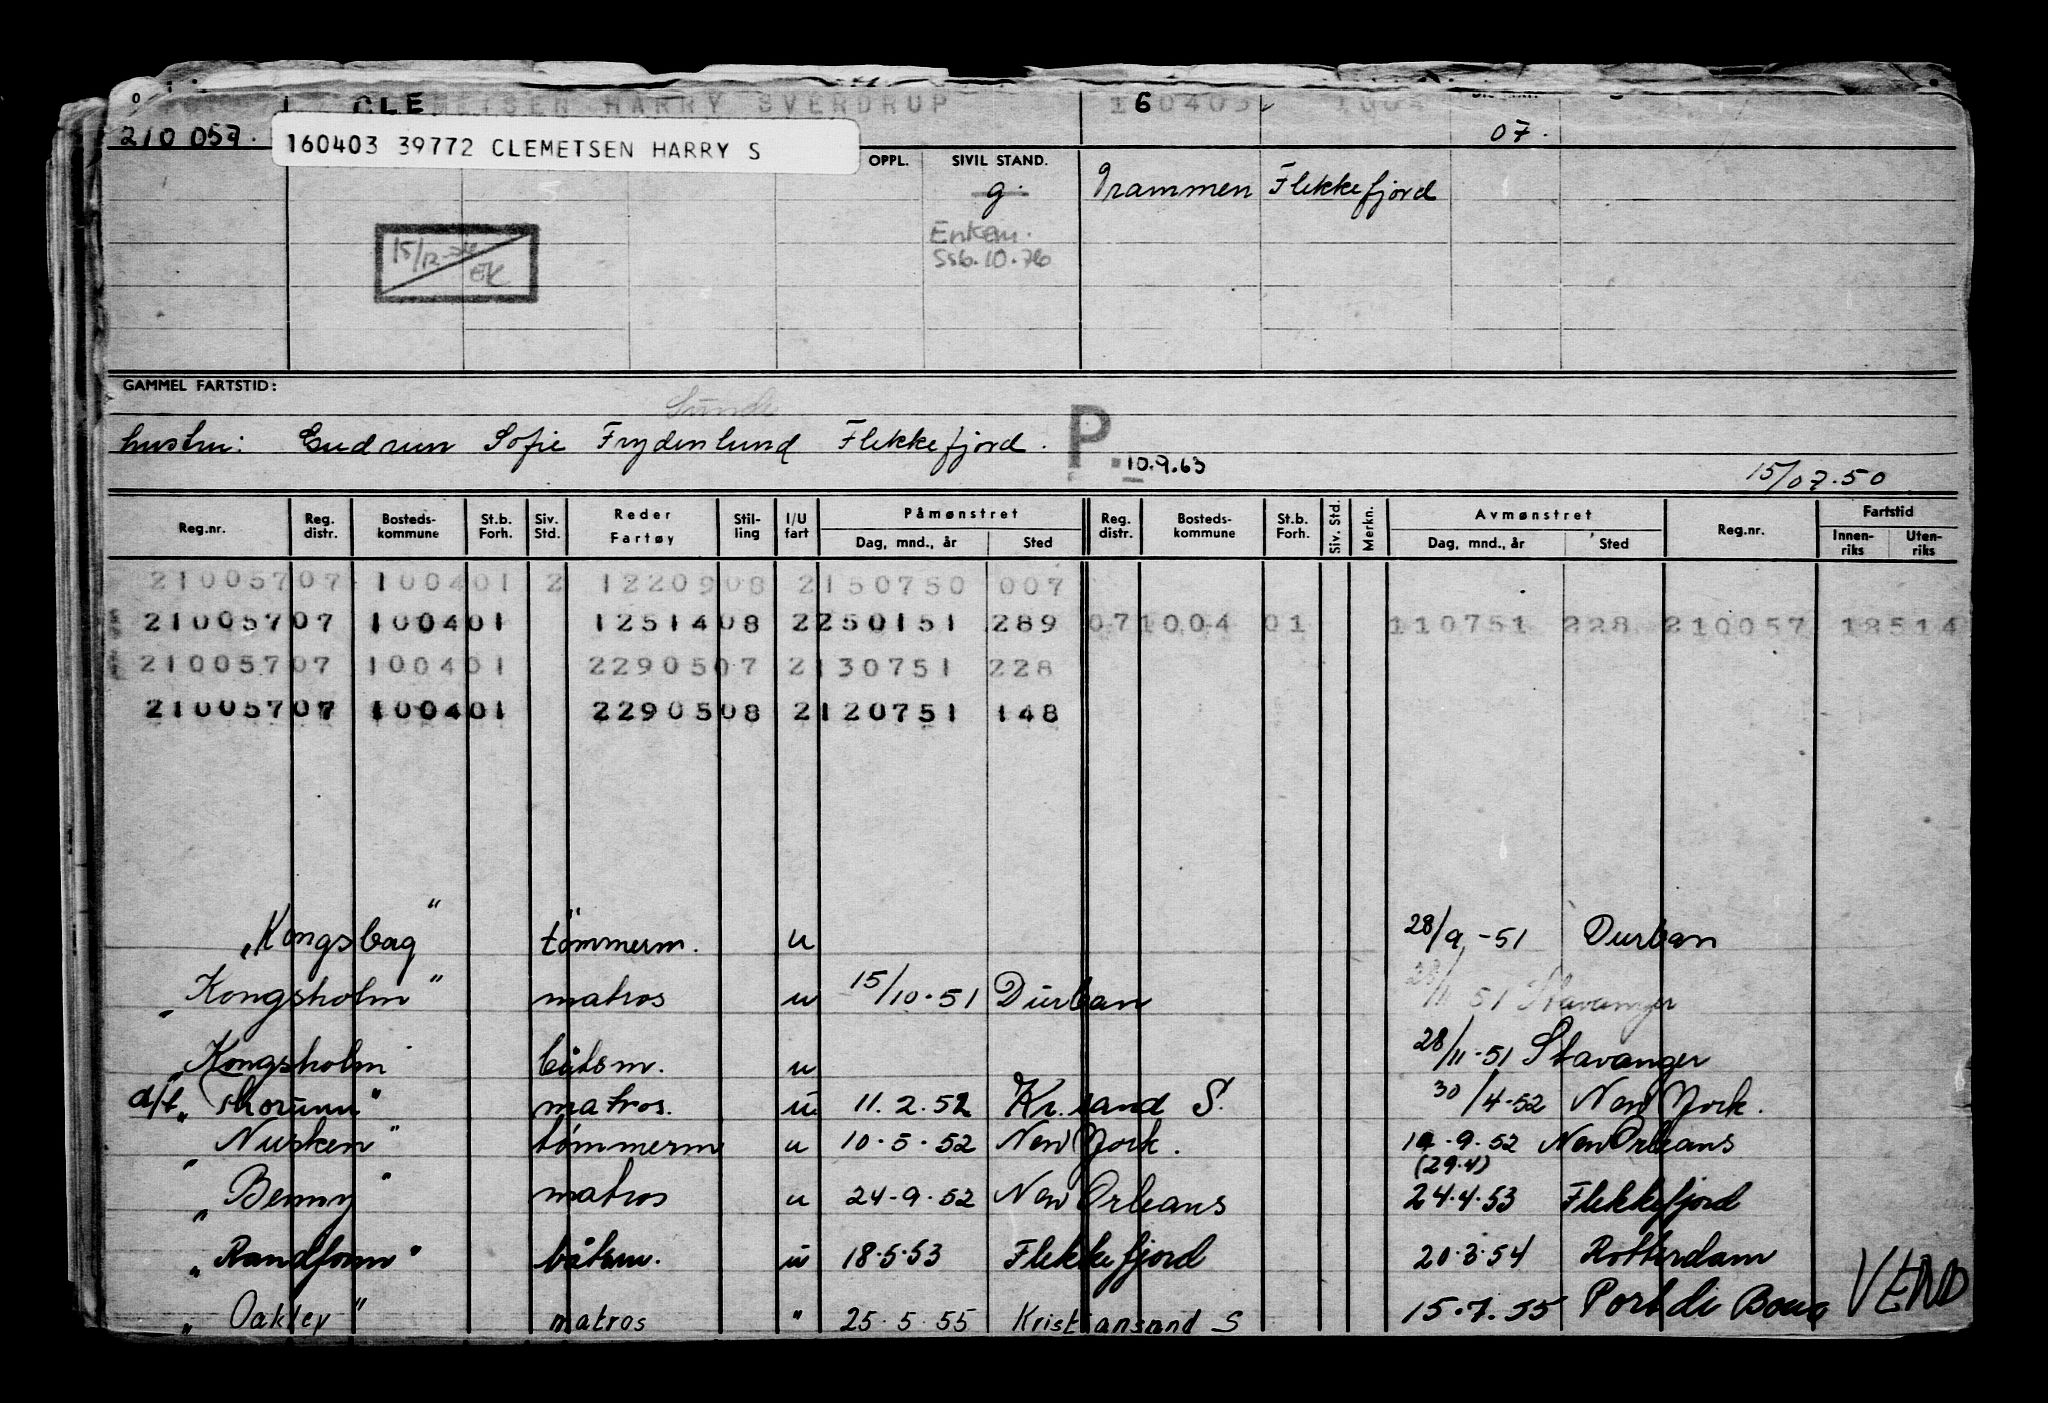 CLEMETSEN HARRY SVERDRUP 6 160403 1004
210 057. 07.
160403 39772 CLEMETSEN HARRY S
OPPL. SIVIL STAND.
g. Drammen Flekkefjord
Enkem.
Ssb. 10.76
15/12-74
EK
GAMMEL FARTSTID:
Sunde
hustru: Gudrun Sofie Frydenlund Flekkefjord. P.
10.9.63
15/07.50
Reg.nr. Reg. distr. Bosteds-kommune St.b. Forh. Siv. Std. Reder Fartøy Stil-ling I/U fart Påmønstret Dag, mnd., år Sted Reg. distr. Bosteds-kommune St.b. Forh. Siv. Std. Merkn. Avmønstret Dag, mnd., år Sted Reg.nr. Fartstid Innen-riks Uten-riks
21005707 100401 2 1220908 2150750 007
21005707 100401 1251408 2250151 289 071004 01 110751 228 210057 12514
21005707 100401 2290507 2130751 228
21005707 100401 2290508 2120751 148
"Kongsbag" tømmerm. u 28/9-51 Durban
"Kongsholm" matros u 15/10.51 Durban 28/11 51 Stavanger
"Kongsholm båtsm. u 28/11.51 Stavanger
d/t "Thorunn" matros. u 11.2.52 Kr.sand S. 30/4-52 New York.
"Nusken" tømmerm u 10.5.52 New York. 19.9.52 New Orleans
(29.4)
"Benny" matros u 24-9.52 New Orleans 24.4.53 Flekkefjord
"Randfonn" båtsm. u 18.5.53 Flekkefjord 20.3.54 Rotterdam
"Oakley" matros " 25.5.55 Kristiansand S 15.7.55 Port de Bouc
VEND